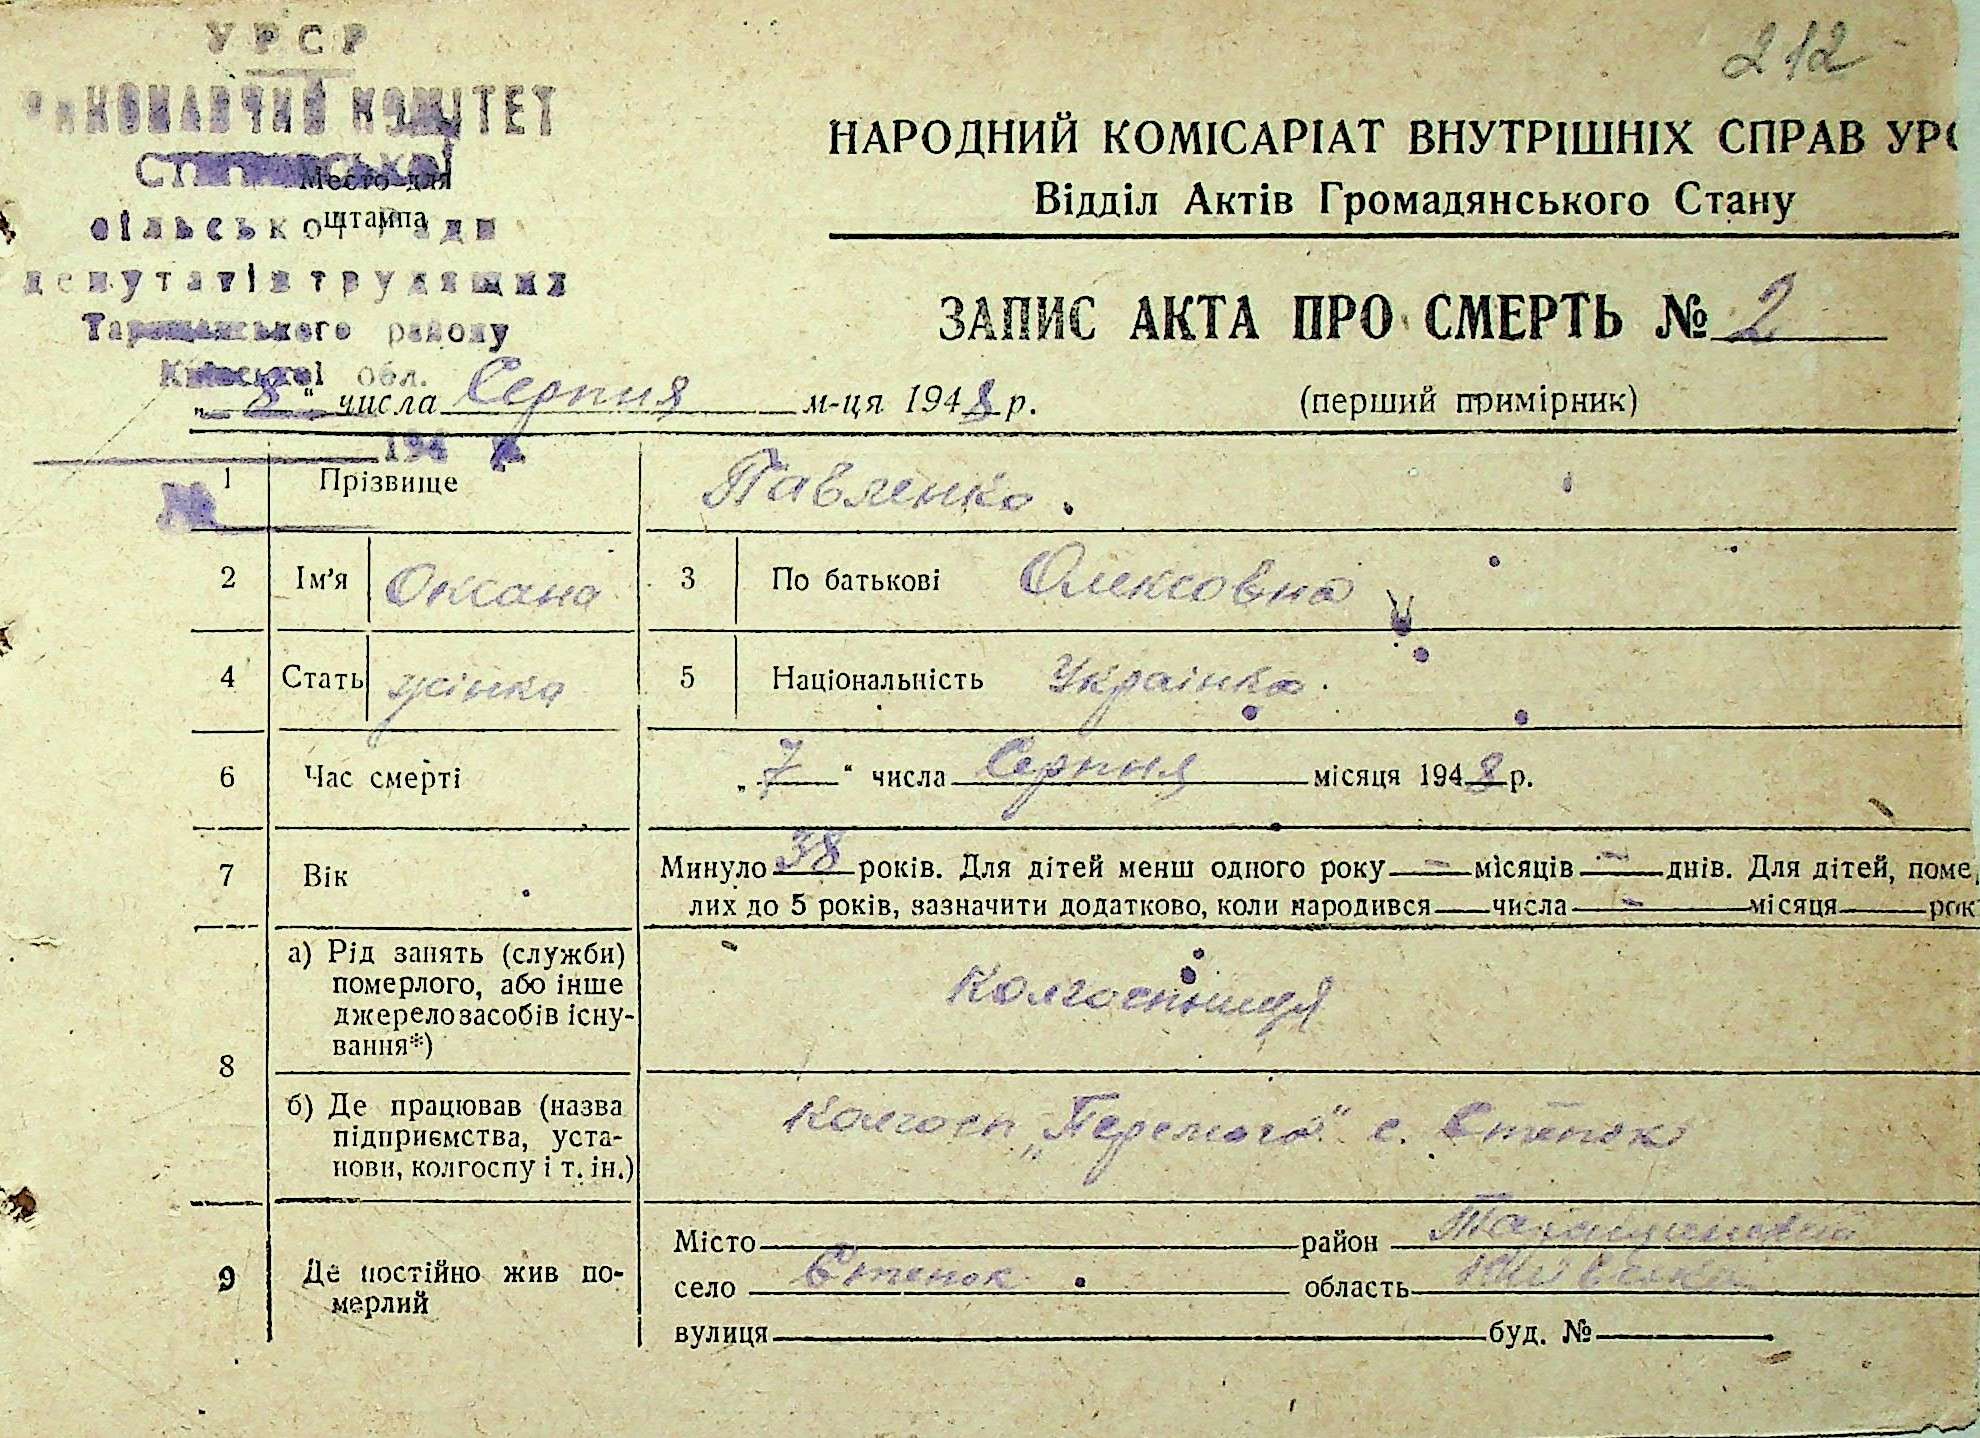 212
УРСР
виконавчий комітет
Место для
штампа
сільської ради
депутатів трудящих
Таращанського району
Київської обл.
194 р.
№
НАРОДНИЙ КОМІСАРІАТ ВНУТРІШНІХ СПРАВ УРС
Відділ Актів Громадянського Стану
ЗАПИС АКТА ПРО СМЕРТЬ № 2
„ 8 “ числа Серпня м-ця 1948 р.
(перший примірник)
1 Прізвище Павленко.
2 Ім'я Оксана 3 По батькові Олексовна
4 Стать жінка 5 Національність Українка.
6 Час смерті „ 7 “ числа Серпня місяця 1948 р.
7 Вік Минуло 38 років. Для дітей менш одного року — місяців — днів. Для дітей, поме
лих до 5 років, зазначити додатково, коли народився — числа — місяця — рок
8 а) Рід занять (служби)
померлого, або інше
джерело засобів існу-
вання*)
Колгоспниця
б) Де працював (назва
підприємства, уста-
нови, колгоспу і т. ін.)
Колгосп „Перемога“ с. Степок
9 Де постійно жив по-
мерлий
Місто район Таращанський
село Степок область Київська
вулиця буд. №